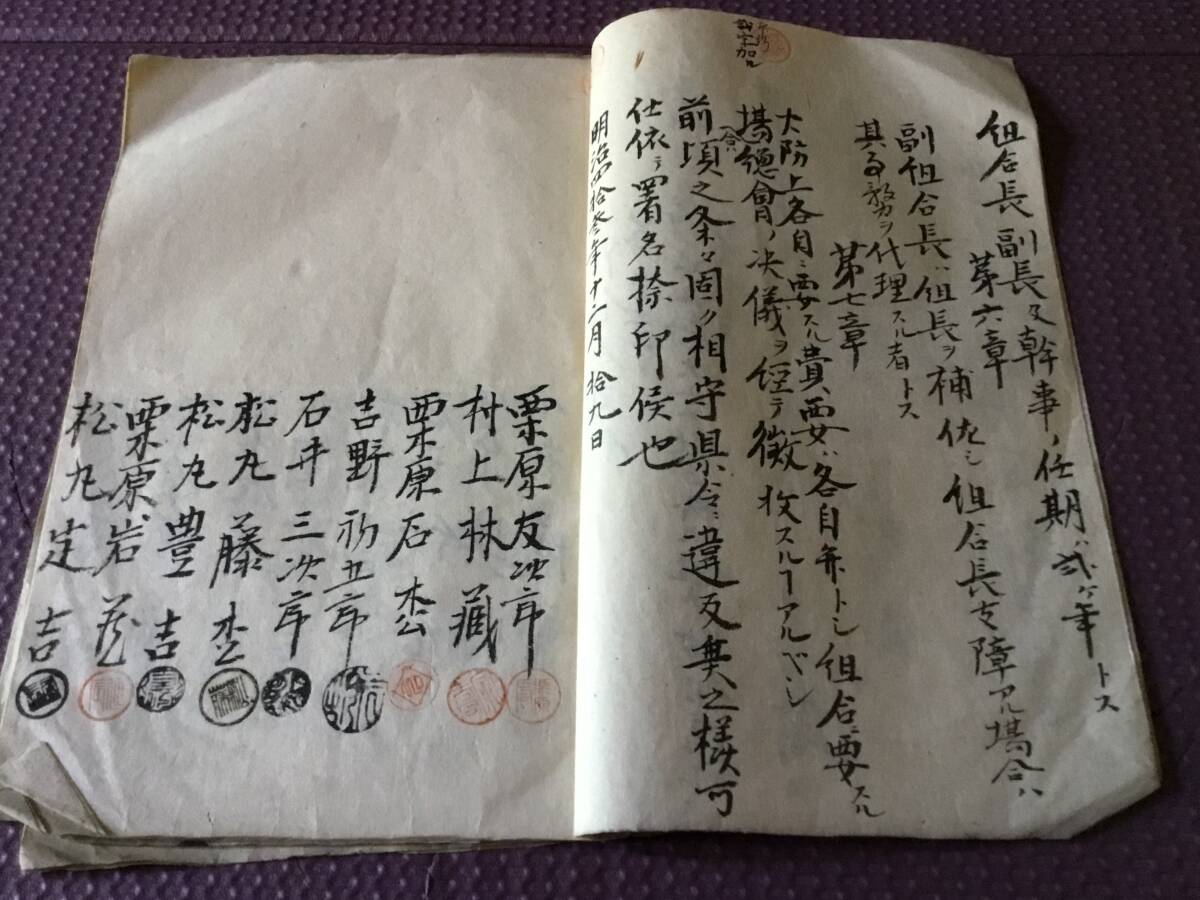 組合長副長及幹事ノ任期ハ弐ヶ年トス
第六章
副組合長ハ組長ヲ補佐シ組合長支障アル場合ハ
其事務ヲ代理スル者トス
第七章
大防上各自ニ要スル費要ハ各自弁トシ組合ニ要スル
場合ハ總會ノ決儀ヲ経テ徴收スルヿアルベシ
前項之条々固ク相守県令ニ違反無之様可
仕依テ署名捺印候也
明治四拾参年十二月拾九日
栗原友次郎
村上林蔵
栗原石松
吉野初五郎
石井三次郎
松丸藤
松丸豊吉
栗原岩蔵
松丸定吉
字加ル